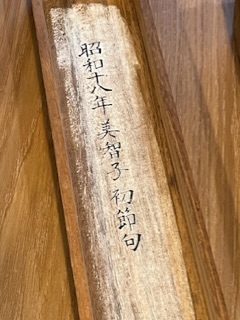 昭和十八年 美智子 初節句